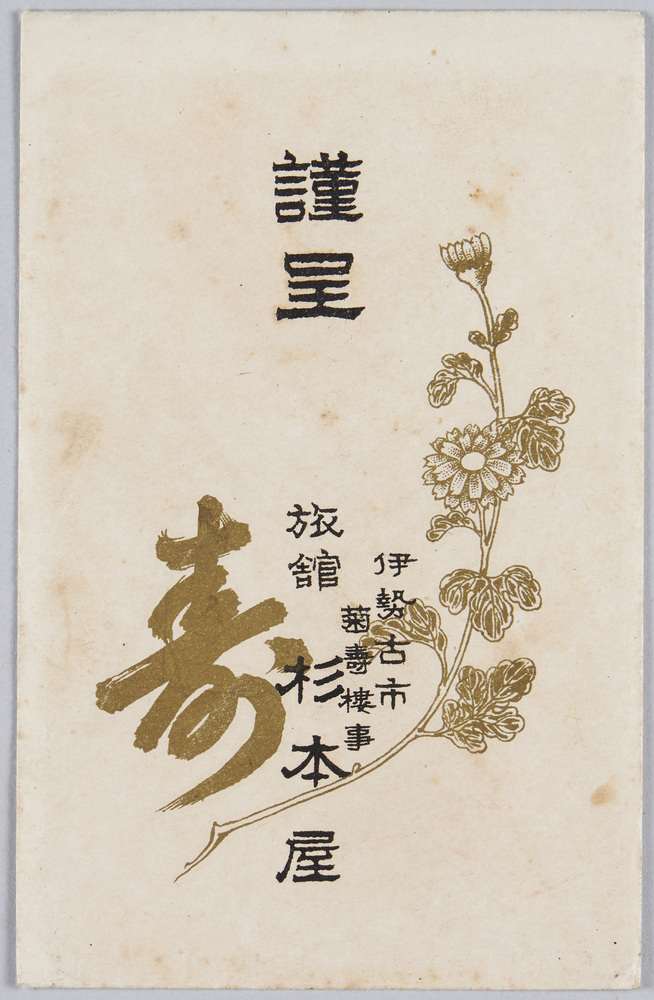 謹呈
伊勢古市
菊壽樓事
旅舘 杉本屋
寿